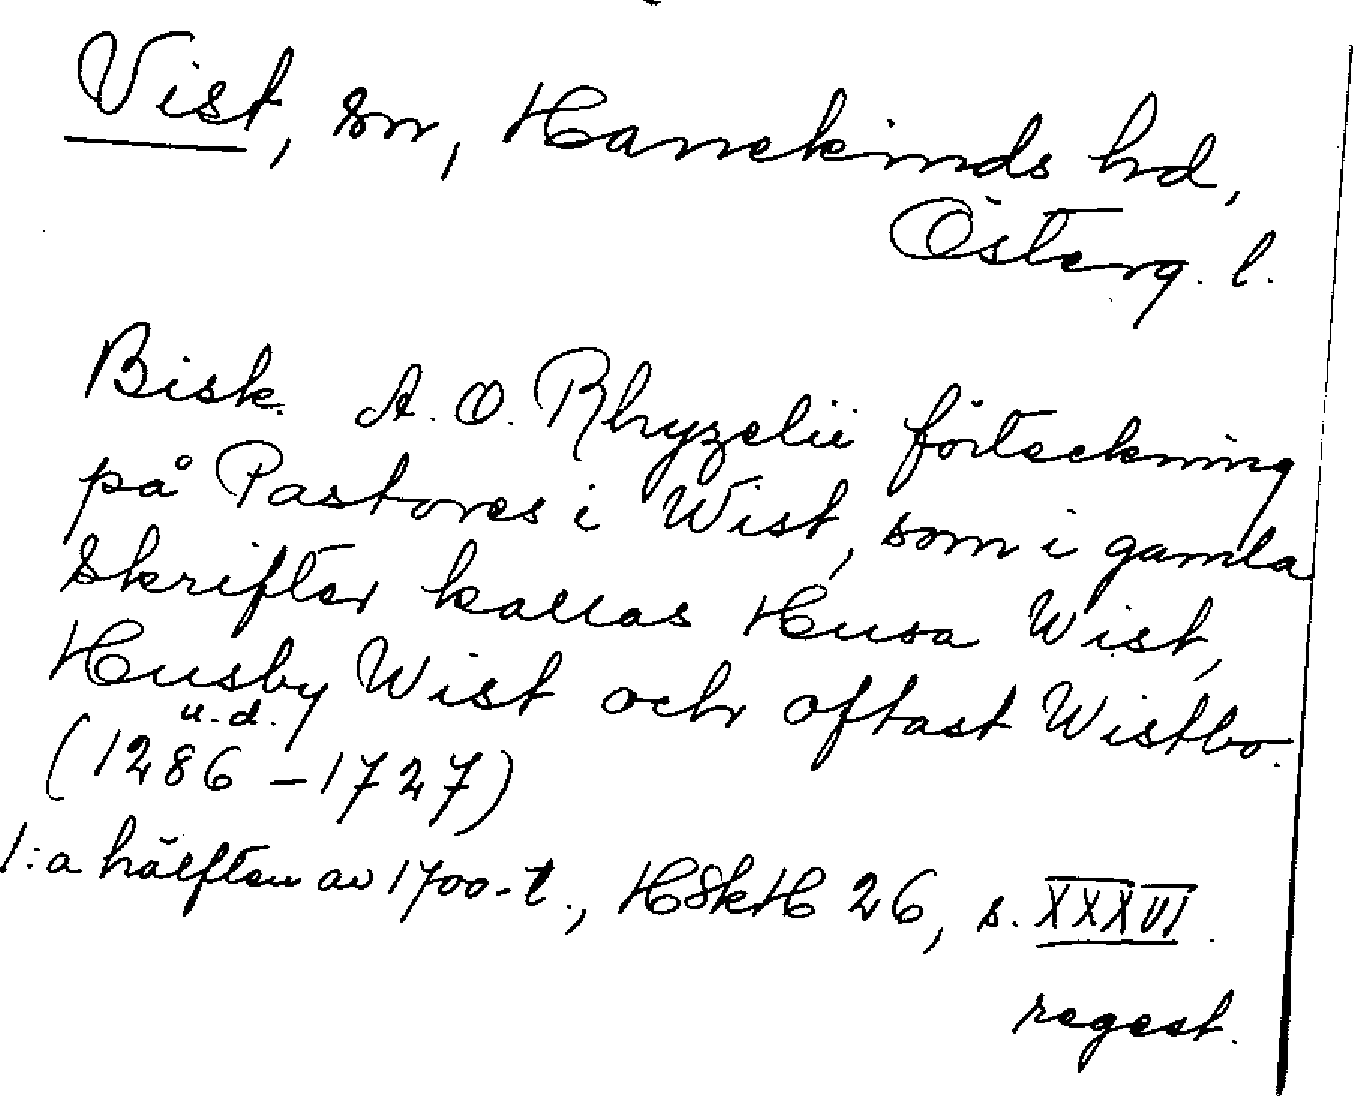 Vist, sn, Hanekinds hd,
Österg. l.
Bisk. A. O. Rhyzelii förteckning
på Pastores i Wist, som i gamla
skrifter kallas Husa Wist,
Husby Wist och oftast Wistbo.
u.d.
(1286 – 1727)
1:a hälften av 1700-t., HSkH 26, s. XXXVI.
regest.